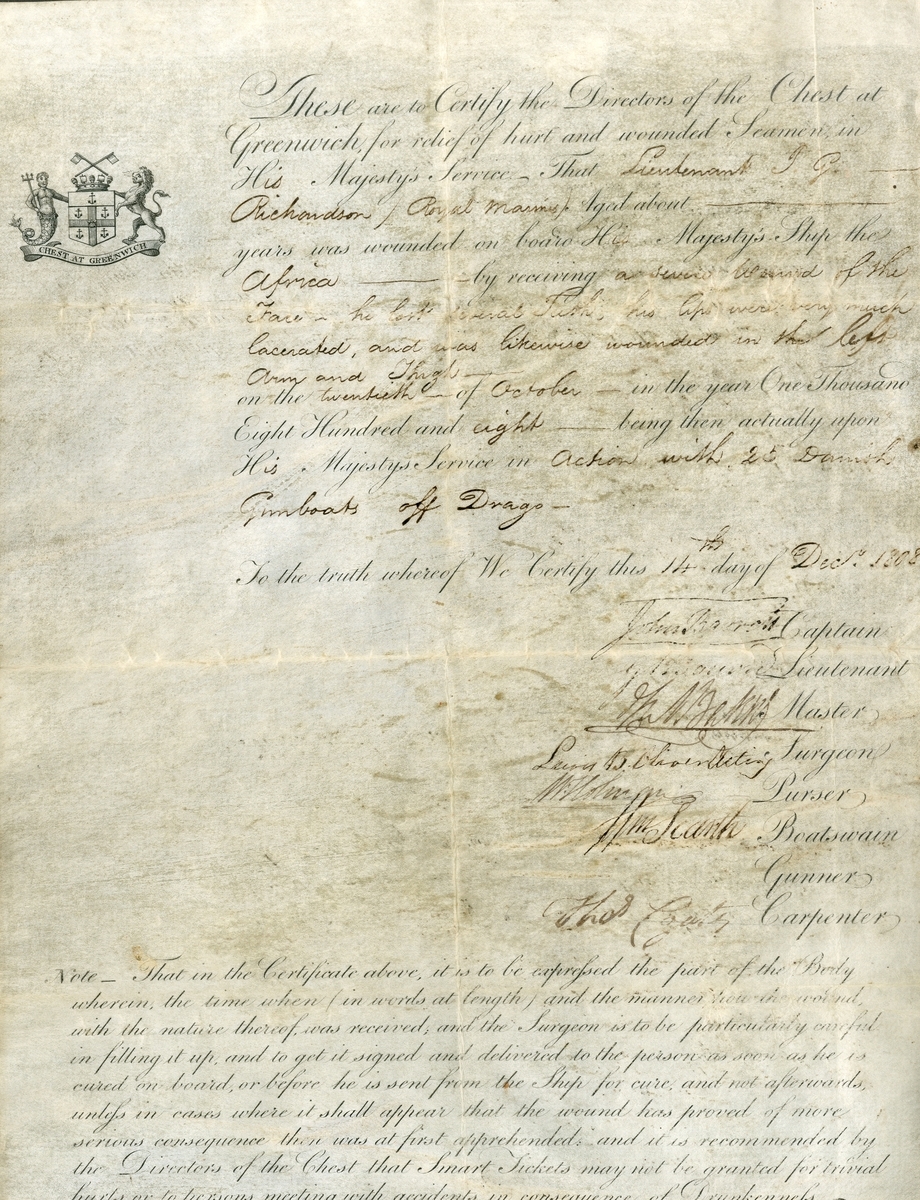 CHEST AT GREENWICH
These are to Certify the Directors of the Chest at
Greenwich, for relief of hurt and wounded Seamen, in
His Majesty's Service – That Lieutenant J. G.
Richardson / Royal Marines / Aged about
years was wounded on board His Majesty's Ship the
Africa by receiving a severe Wound of the
Face – he lost several Teeth, his lips were very much
lacerated, and was likewise wounded in the left
Arm and Thigh –
on the twentieth – of October – in the year One Thousand
Eight Hundred and eight being then actually upon
His Majesty's Service in Action with 25 Danish
Gunboats off Drago –
To the truth whereof We Certify this 14th day of Decr. 1808
John Barrett Captain
Lieutenant
Master
Surgeon
Purser
Wm Scarth Boatswain
Gunner
Thos Carpenter
Note – That in the Certificate above, it is to be expressed the part of the Body
wherein, the time when (in words at length) and the manner how the wound,
with the nature thereof, was received; and the Surgeon is to be particularly careful
in filling it up, and to get it signed and delivered to the person as soon as he is
cured on board, or before he is sent from the Ship for cure, and not afterwards,
unless in cases where it shall appear that the wound has proved of more
serious consequence then was at first apprehended: and it is recommended by
the Directors of the Chest that Smart Tickets may not be granted for trivial
hurts or to persons meeting with accidents in consequence of Drunkenness